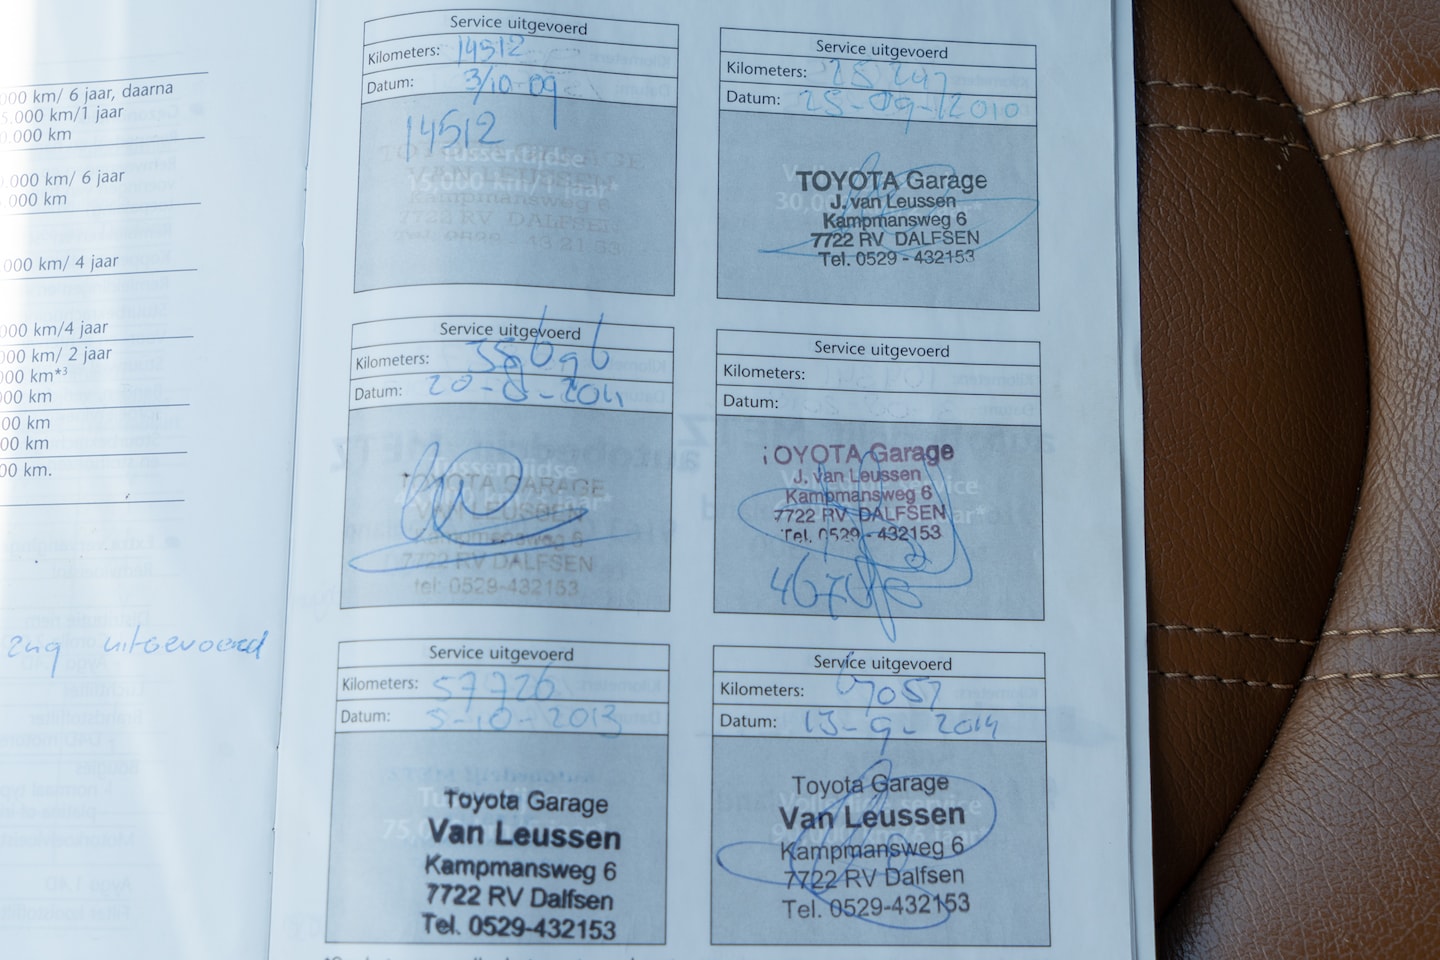 000 km/ 6 jaar, daarna
5.000 km/1 jaar
0.000 km
.000 km/ 6 jaar
.000 km
000 km/ 4 jaar
000 km/4 jaar
000 km/ 2 jaar
000 km*³
000 km
00 km
00 km
00 km.
uitgevoerd
Service uitgevoerd
Kilometers: 14512
Datum: 3/10-09
14512
Tussentijdse
15,000 km/1 jaar*
TOYOTA GARAGE
VAN LEUSSEN
Kampmansweg 6
7722 RV DALFSEN
Service uitgevoerd
Kilometers: 25247
Datum: 25-09-2010
TOYOTA Garage
J. van Leussen
Kampmansweg 6
7722 RV DALFSEN
Tel. 0529 - 432153
Service uitgevoerd
Kilometers: 35696
Datum:
Tussentijdse
TOYOTA GARAGE
VAN LEUSSEN
Kampmansweg 6
7722 RV DALFSEN
tel: 0529-432153
Service uitgevoerd
Kilometers:
Datum:
TOYOTA Garage
J. van Leussen
Kampmansweg 6
7722 RV DALFSEN
Tel. 0529 - 432153
Service uitgevoerd
Kilometers: 57726
Datum: 5-10-2013
Toyota Garage
Van Leussen
Kampmansweg 6
7722 RV Dalfsen
Tel. 0529-432153
Service uitgevoerd
Kilometers: 67057
Datum: 13-9-2014
Volledige service
Toyota Garage
Van Leussen
Kampmansweg 6
7722 RV Dalfsen
Tel. 0529-432153